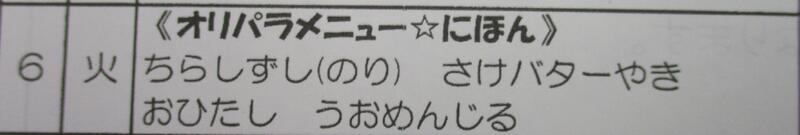 《オリパラメニュー☆にほん》
6 火 ちらしずし(のり) さけバターやき
おひたし うおめんじる